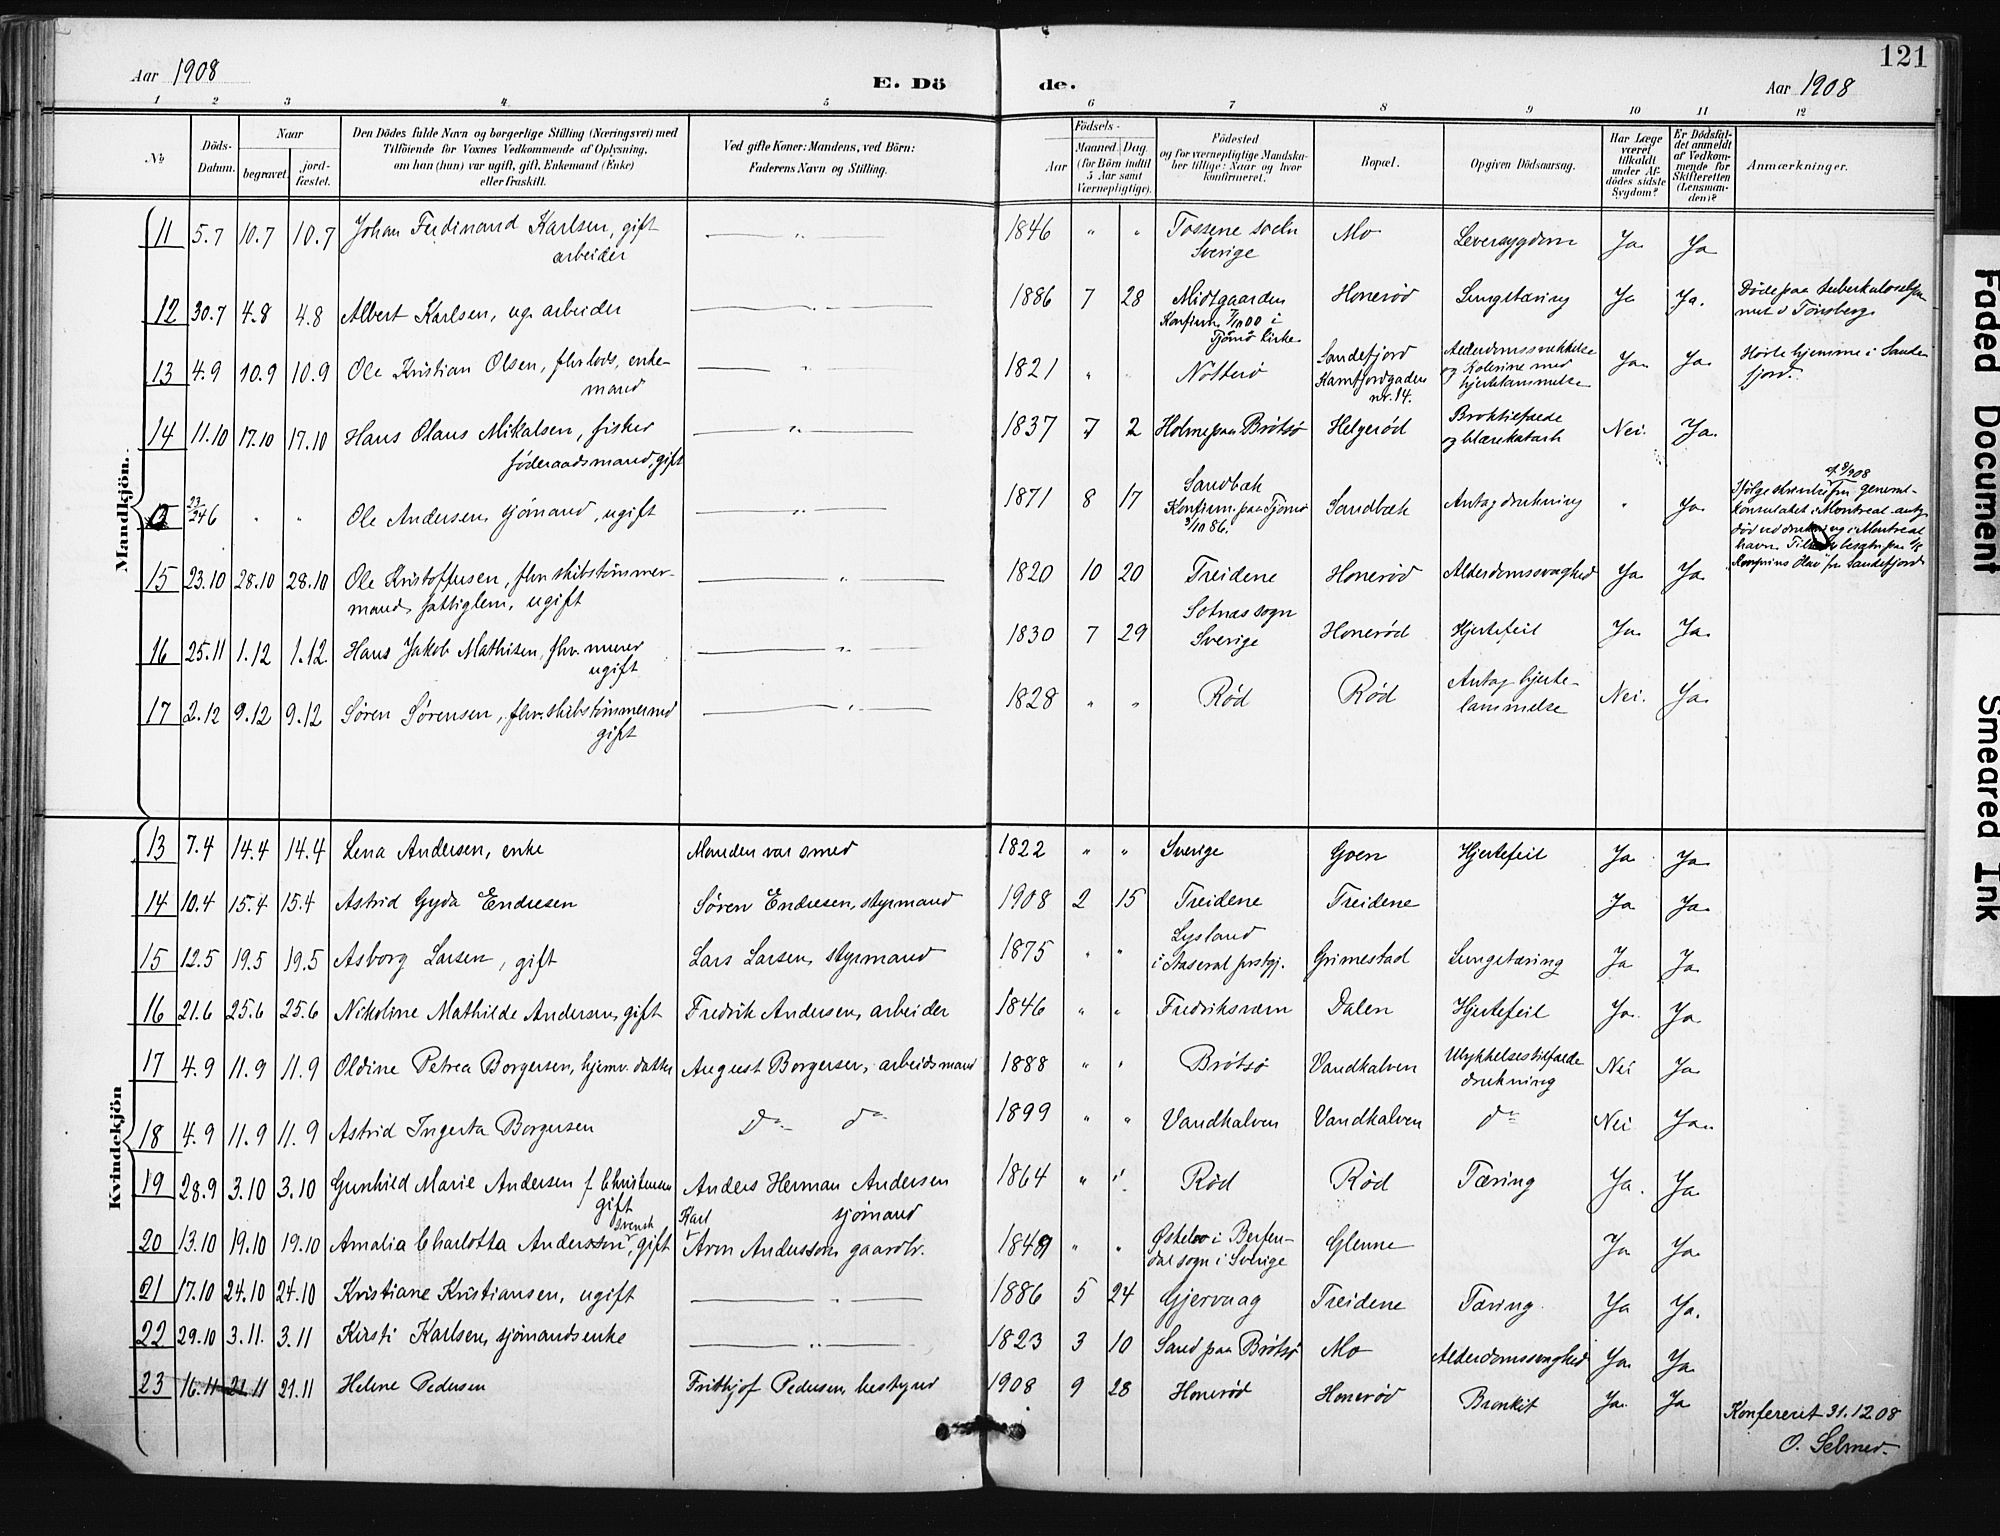 Aar 1908
E. Dö
de.
Aar 1908
121
1 2 3 4 5 6 7 8 9 10 11 12
No
Döds-Datum.
Naar
begravet.
jord-fæstet.
Den Dödes fulde Navn og borgerlige Stilling (Næringsvei) med
Tilföiende for Voxnes Vedkommende af Oplysning,
om han (hun) var ugift, gift, Enkemand (Enke)
eller fraskilt.
Ved gifte Koner: Mandens, ved Börn:
Faderens Navn og Stilling.
Födsels-
Aar
Maaned Dag
(for Börn indtil
5 Aar samt
Værnepligtige).
Födested
og for værnepligtige Mandska-
ber tillige: Naar og hvor
konfirmeret.
Bopæl.
Opgiven Dödsaarsag.
Har Læge
været
tilkaldt
under Af-
dödes sidste
Sygdom?
Er Dödsfal-
det anmeldt
af Vedkom-
mende for
Skifteretten
(Lensman-
den)?
Anmærkninger.
Mandkjön.
11 5.7 10.7 10.7 Johan Ferdinand Karlsen, gift
arbeider
— " — 1846 " " Tossene socln
Sverige
Mo Leversygdom Ja Ja
12 30.7 4.8 4.8 Albert Karlsen, ug. arbeider — " — 1886 7 28 Midtgaarden
Konfirm. 7/10 00 i
Tjømø kirke
Honerød Lungetæring Ja Ja. Døde paa
i Tønsberg
13 4.9 10.9 10.9 Ole Kristian Olsen, fhv. lods, enke-
mand
— " — 1821 " " Nøtterø Sandefjord
Kamfjordgaden
nr. 14.
Alderdomssvækkelse
og Kolerine med
hjertelammelse
Ja. Ja. Hørte hjemme i Sande-
fjord.
14 11.10 17.10 17.10 Hans Olaus Mikalsen, fisker
føderaadsmand, gift
— " — 1837 7 2 Holme paa Brøtsø Helgerød Broktilfælde
og blærekatarh
Nei. Ja.
23/24 6 " " Ole Andersen, sjømand, ugift — " — 1871 8 17 Sandbæk
Konfirm. paa Tjømø
3/10 86.
Sandbæk Antag. drukning " Ja.
konsulatet i Montreal antag.
død ved drukning i Montreal
havn.
Kronprins Olav fra Sandefjord
15 23.10 28.10 28.10 Ole Kristoffersen, fhv. skibstømmer-
mand, fattiglem, ugift
— " — 1820 10 20 Treidene Honerød Alderdomssvaghed Ja. Ja.
16 25.11 1.12 1.12 Hans Jakob Mathisen, fhv. murer
ugift
— " — 1830 7 29 Sotnæs sogn
Sverige
Honerød Hjertefeil Ja. Ja.
17 2.12 9.12 9.12 Søren Sørensen, fhv. skibstømmermd
gift
— " — 1828 " " Rød Rød Antag. hjerte-
lammelse
Nei. Ja.
Kvindekjön
13 7.4 14.4 14.4 Lena Andersen, enke Manden var smed 1822 " " Sverige Goen Hjertefeil Ja Ja.
14 10.4 15.4 15.4 Astrid Gyda Endresen Søren Endresen, styrmand 1908 2 15 Treidene Treidene Ja Ja.
15 12.5 19.5 19.5 Asborg Larsen, gift Lars Larsen, styrmand 1875 " " Lysland
i Aaseral prstgj.
Grimestad Lungetæring Ja Ja.
16 21.6 25.6 25.6 Nikoline Mathilde Andersen, gift Fredrik Andersen, arbeider 1846 " " Fredriksværn Dalen Hjertefeil Ja. Ja
17 4.9 11.9 11.9 Oldine Petrea Borgersen, hjemv. datter August Borgersen, arbeidsmand 1888 " " Brøtsø Vandkalven Ulykkelsestilfælde
drukning
Nei Ja
18 4.9 11.9 11.9 Astrid Ingerta Borgersen Do do 1899 " " Vandkalven Vandkalven do Nei Ja.
19 28.9 3.10 3.10 Gunhild Marie Andersen f. Christensen
gift
Anders Herman Andersen
sjømand
1864 " " Rød Rød Tæring Ja. Ja.
20 13.10 19.10 19.10 Amalia Charlotta Andersson, svensk gift Karl Aron Andersson, gaardbr. 1849 " " i Berfen-
dal sogn i Sverige
Glenne Ja Ja.
21 17.10 24.10 24.10 Kristiane Kristiansen, ugift — " — 1886 5 24 Gjervaag Treidene Tæring Ja Ja.
22 29.10 3.11. 3.11 Kirsti Karlsen, sjømandsenke — " — 1823 3 10 Sand paa Brøtsø Mo Alderdomssvaghed Ja. Ja.
23 16.11 21.11 21.11 Helene Pedersen Frithjof Pedersen, bestyrer 1908 9 28 Honerød Honerød Bronkit Ja. Ja
Konfereret 31.12.08
O. Selmer.
Faded Document
Smeared Ink